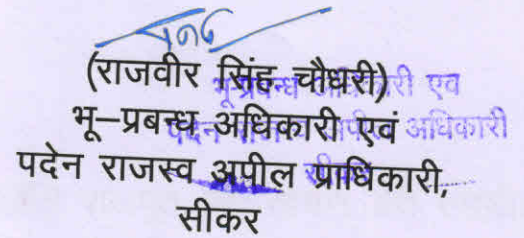 (राजवीर सिंह चौधरी)
भू–प्रबन्ध अधिकारी एवं
पदेन राजस्व अपील प्राधिकारी,
सीकर
भू-प्रबन्ध अधिकारी एव
पदेन राजस्व अपील अधिकारी
सीकर